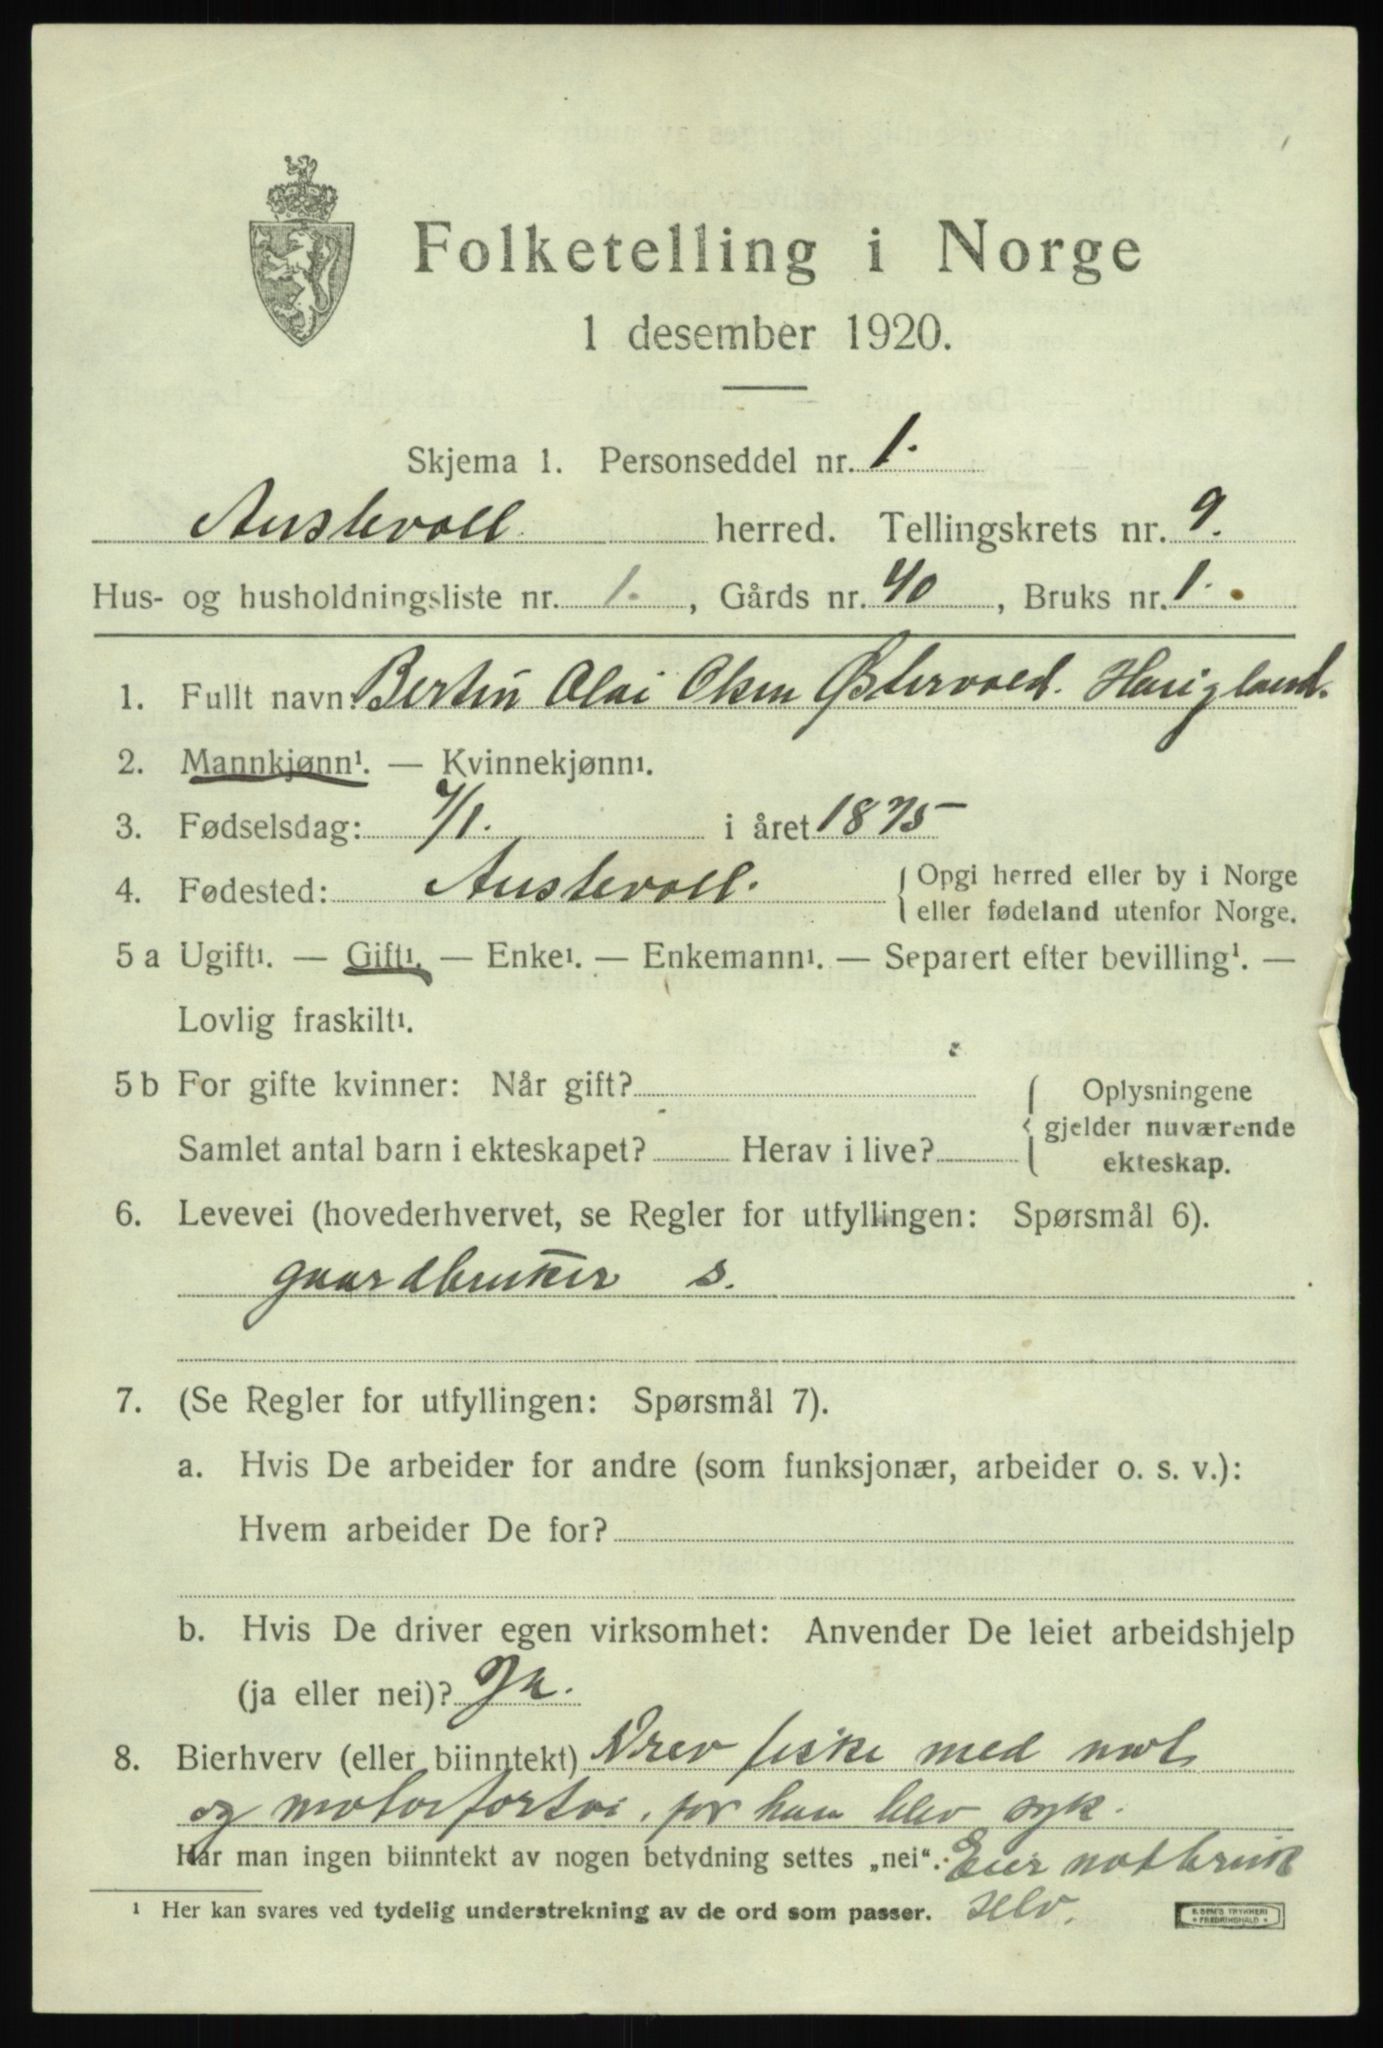 Folketelling i Norge
1 desember 1920.
Skjema 1. Personseddel nr. 1.
Austevoll herred. Tellingskrets nr. 9.
Hus- og husholdningsliste nr. 1. , Gårds nr. 40 , Bruks nr. 1.
1. Fullt navn: Bertin Olai Olsen Østervold. Haugland.
2. Mannkjønn¹. — Kvinnekjønn¹.
3. Fødselsdag: 7/1. i året 1875
4. Fødested: Austevoll. Opgi herred eller by i Norge
eller fødeland utenfor Norge.
5 a Ugift¹. — Gift¹. — Enke¹. — Enkemann¹. — Separert efter bevilling¹. —
Lovlig fraskilt¹.
5 b For gifte kvinner: Når gift? Oplysningene
gjelder nuværende
Samlet antal barn i ekteskapet? Herav i live?
ekteskap.
6. Levevei (hovederhvervet, se Regler for utfyllingen: Spørsmål 6).
gaardbruker s.
7. (Se Regler for utfyllingen: Spørsmål 7).
a. Hvis De arbeider for andre (som funksjonær, arbeider o. s. v.):
Hvem arbeider De for?
b. Hvis De driver egen virksomhet: Anvender De leiet arbeidshjelp
(ja eller nei)? Ja.
8. Bierhverv (eller biinntekt) Drev fiske med not
og motorfartøi, før han blev syk.
Har man ingen biinntekt av nogen betydning settes „nei“. Eier notbruk
¹ Her kan svares ved tydelig understrekning av de ord som passer. selv.
E. SEM'S TRYKKERI
FREDRIKSHALD